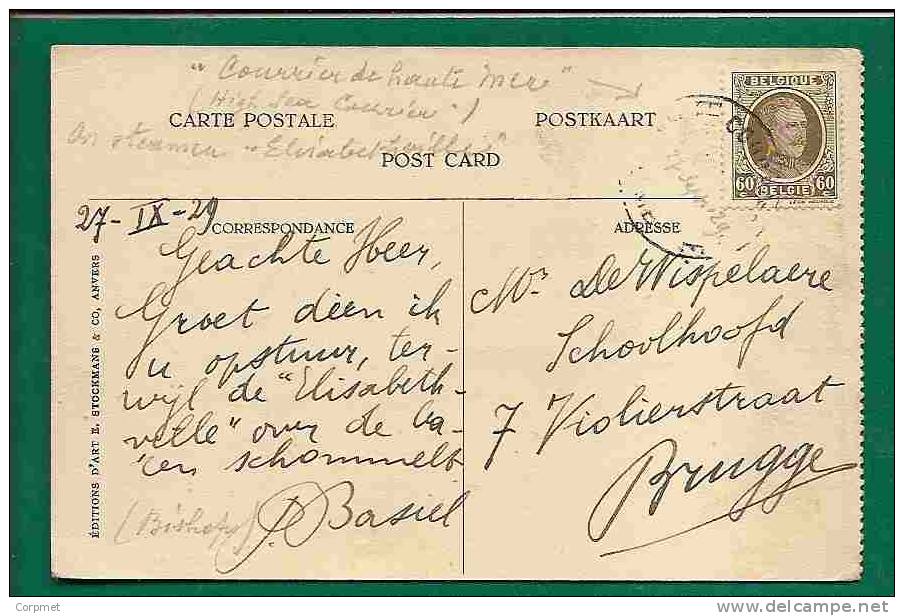 "Courrier de haute mer"
(High Sea Courier")
CARTE POSTALE
POSTKAART
on steamer "Elisabethville"
POST CARD
BELGIQUE
60 BELGIE 60
27-IX-29
CORRESPONDANCE
ADRESSE
Geachte Heer,
Groet dien ik
u opstuur, ter-
wijl de "Elisabeth-
ville" over de ba-
en schommelt
P. Basiel
(Bishop)
Mr De Wispelaere
Schoolhoofd
7 Violierstraat
Brugge
ÉDITIONS D'ART E. STOCKMANS & CO, ANVERS
Copyright : Corpmet
www.delcampe.net